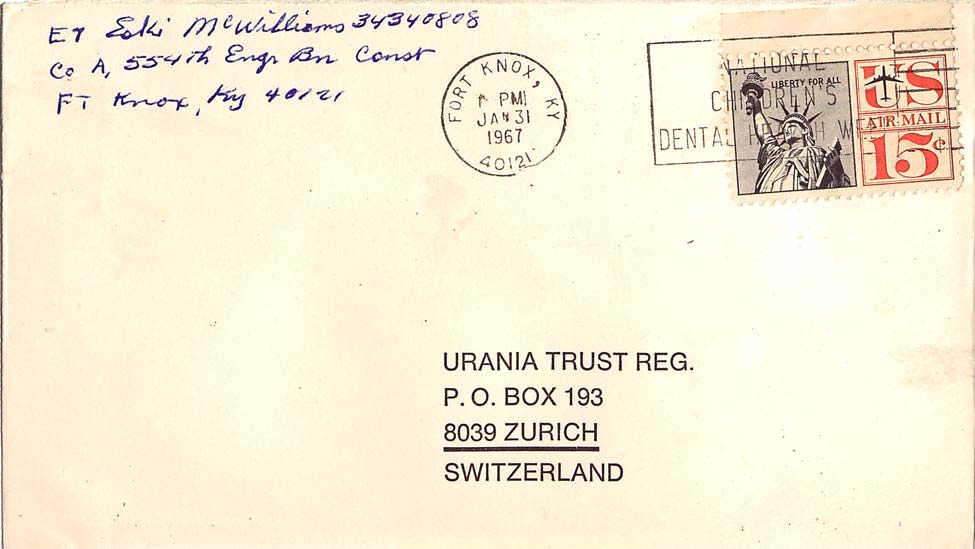 E7 Eski McWilliams 34340808
Co A, 554th Engr Bn Const
FT Knox, Ky 40121
FORT KNOX, KY
PM
JAN 31
1967
40121
NATIONAL
CHILDREN'S
DENTAL HEALTH WEEK
LIBERTY FOR ALL
US
AIR MAIL
15¢
URANIA TRUST REG.
P. O. BOX 193
8039 ZURICH
SWITZERLAND